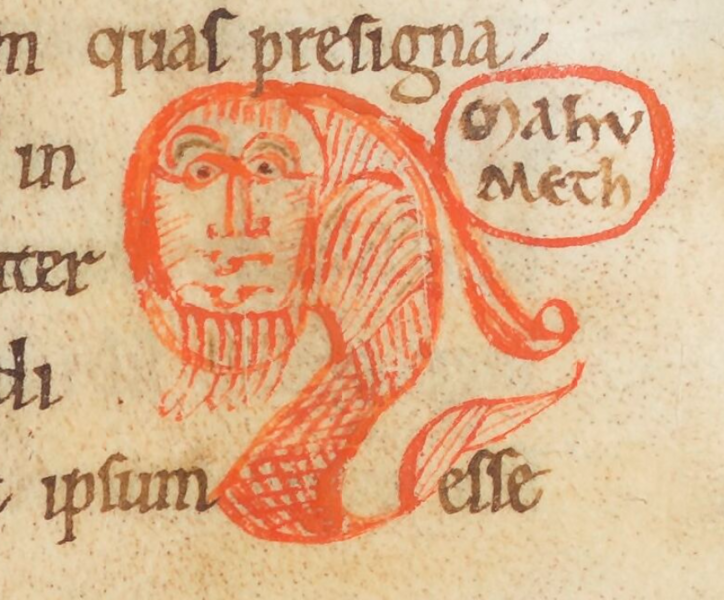 n quas presigna
Mahu
meth
in
tter
di
ipsum esse